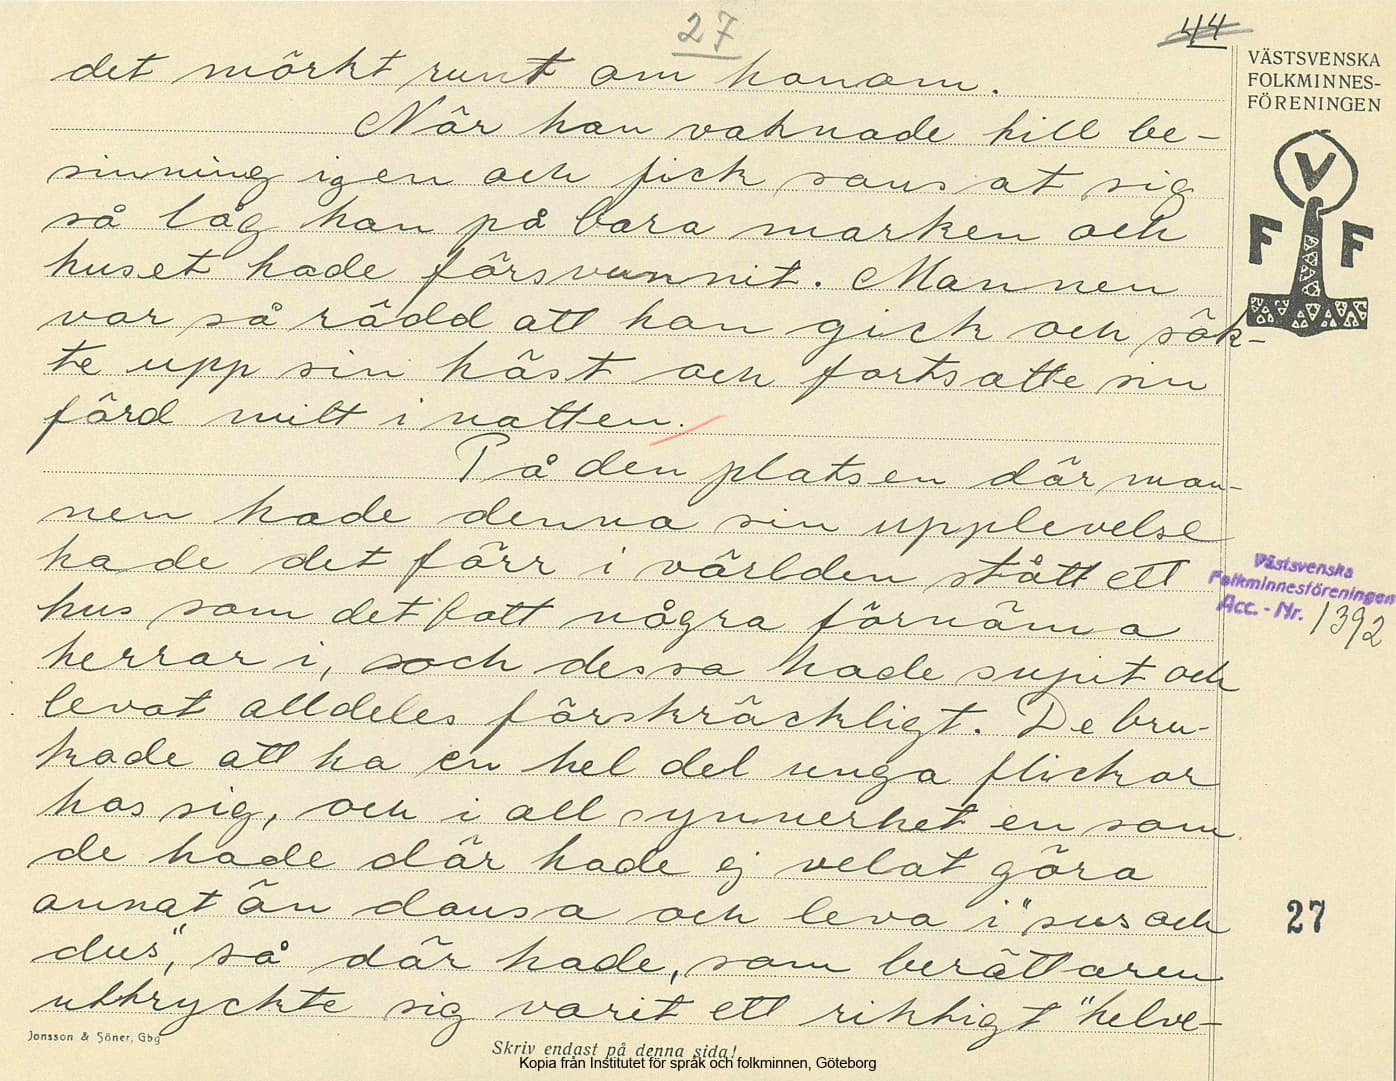 27
44
VÄSTSVENSKA
FOLKMINNES-
FÖRENINGEN
V
F F
det mörkt runt om honom.
När han vaknade till be-
sinning igen och fick sans at sig
så låg han på bara marken och
huset hade försvunnit. Mannen
var så rädd att han gick och sök-
te upp sin häst och fortsatte sin
färd mitt i natten.
På den platsen där man-
nen hade denna sin upplevelse
hade det förr i världen stått ett
hus som det bott några förnäma
herrar i, och dessa hade supit och
levat alldeles förskräckligt. De bru-
kade att ha en hel del unga flickor
hos sig, och i all synnerhet en som
de hade där hade ej velat göra
annat än dansa och leva i "sus och
dus", så där hade, som berättaren
uttryckte sig varit ett riktigt "helve-
Västsvenska
Folkminnesföreningen
Acc. - Nr. 1392
27
Jonsson & Söner, Gbg
Skriv endast på denna sida!
Kopia från Institutet för språk och folkminnen, Göteborg